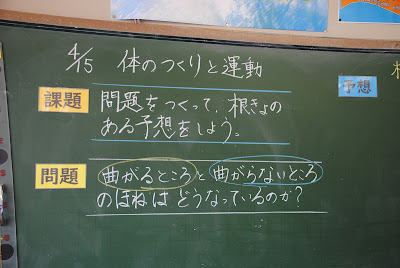 4/5 体のつくりと運動
課題
問題をつくって、根きょの
ある予想をしよう。
予想
問題
曲がるところと曲がらないところ
のほねはどうなっているのか?